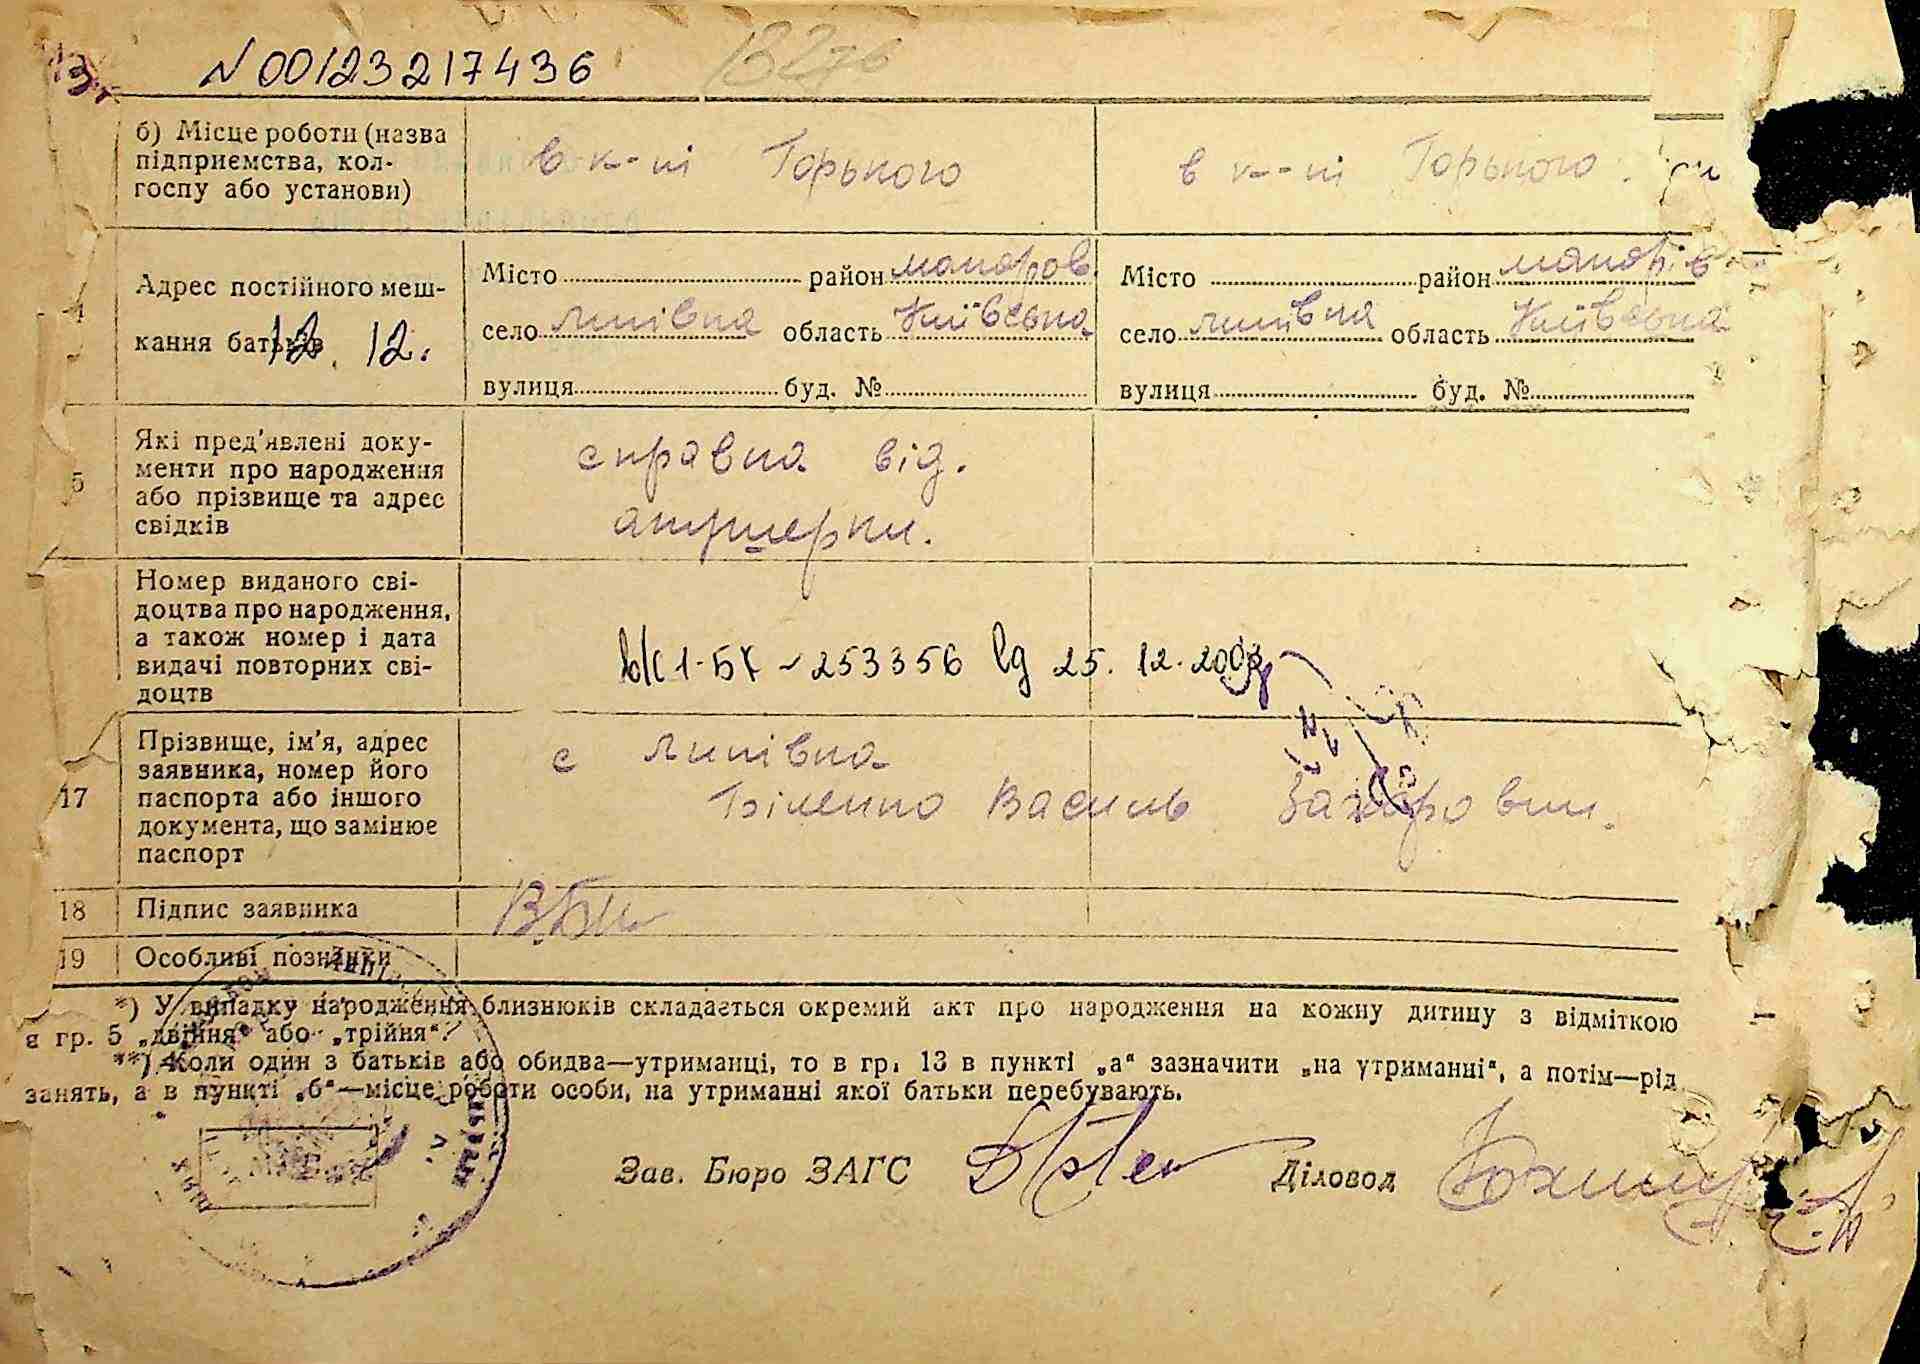 N 00123217436
13
б) Місце роботи (назва
підприємства, кол-
госпу або установи)
в к-пі Горького
в к-пі Горького
Адрес постійного меш-
кання батьків
12. 12.
Місто район макаров.
село липівка область Київська
вулиця буд. №
Місто район макарів
село липівка область Київська
вулиця буд. №
5
Які пред'явлені доку-
менти про народження
або прізвище та адрес
свідків
справка від.
акушерки.
Номер виданого сві-
доцтва про народження,
а також номер і дата
видачі повторних сві-
доцтв
1-БК - 253356 від 25. 12.
17
Прізвище, ім'я, адрес
заявника, номер його
паспорта або іншого
документа, що замінює
паспорт
с липівка
Біленко Василь Захарович.
18
Підпис заявника
19
Особливі познанки
*) У випадку народження близнюків складається окремий акт про народження на кожну дитину з відміткою
в гр. 5 „двійня“ або „трійня“.
**) Коли один з батьків або обидва—утриманці, то в гр. 13 в пункті „а“ зазначити „на утриманні“, а потім—рід
занять, а в пункті „б“—місце роботи особи, на утриманні якої батьки перебувають.
Зав. Бюро ЗАГС
Діловод